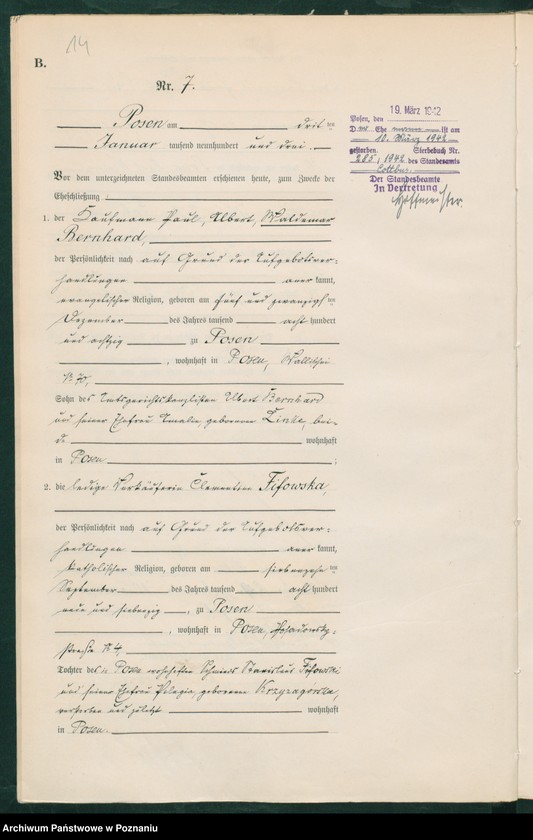 14
B.
Nr. 7.
Posen am drit ten
Januar tausend neunhundert und drei
Vor dem unterzeichneten Standesbeamten erschienen heute, zum Zwecke der
Eheschließung
1. der Kaufmann Paul, Albert, Waldemar
Bernhard,
der Persönlichkeit nach auf Grund der Aufgebotsver-
handlungen aner kannt,
evangelischer Religion, geboren am fünf und zwanzigsten
Dezember des Jahres tausend acht hundert
und achtzig zu Posen
, wohnhaft in Posen, Wallischei
N 70,
Sohn des Amtsgerichtskanzlisten Albert Bernhard
und seiner Ehefrau Amalie, geborenen Linke, bei-
de wohnhaft
in Posen ;
2. die ledige Verkäuferin Clementine Fifowska,
der Persönlichkeit nach auf Grund der Aufgebotsver-
handlungen aner kannt,
katholischer Religion, geboren am siebenzehn ten
September des Jahres tausend acht hundert
neun und siebenzig , zu Posen
, wohnhaft in Posen
straße N 4,
Tochter des in Posen wohnhaften Schmieds Stanislaus Fifowski
und seiner Ehefrau Pelagia, geborenen
verstorben und zuletzt wohnhaft
in Posen.
Posen, den 19. März 1942
D. Ehe ist am
10. März 1942
gestorben. Sterbebuch Nr.
285, 1942 des Standesamts
Cottbus.
Der Standesbeamte
In Vertretung
Archiwum Państwowe w Poznaniu